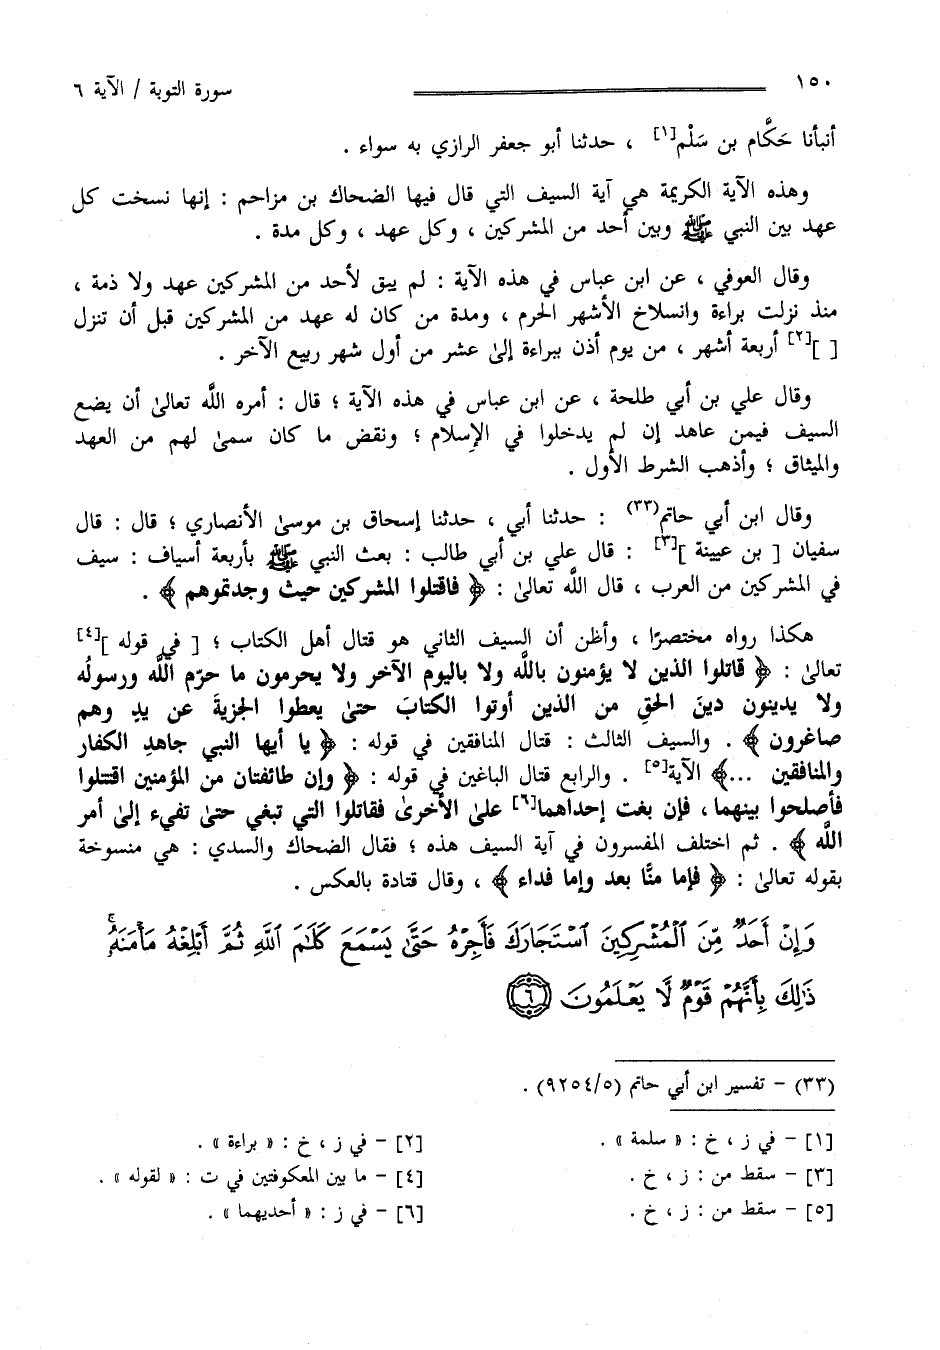 ١٥٠ سورة التوبة / الآية ٦
أنبأنا حَكَّام بن سَلْم[١] ، حدثنا أبو جعفر الرازي به سواء .
وهذه الآية الكريمة هي آية السيف التي قال فيها الضحاك بن مزاحم : إنها نسخت كل
عهد بين النبي ﷺ وبين أحد من المشركين ، وكل عهد ، وكل مدة .
وقال العوفي ، عن ابن عباس في هذه الآية : لم يبق لأحد من المشركين عهد ولا ذمة ،
منذ نزلت براءة وانسلاخ الأشهر الحرم ، ومدة من كان له عهد من المشركين قبل أن تنزل
[ ][٢] أربعة أشهر ، من يوم أذن ببراءة إلىٰ عشر من أول شهر ربيع الآخر .
وقال علي بن أبي طلحة ، عن ابن عباس في هذه الآية ؛ قال : أمره اللَّه تعالىٰ أن يضع
السيف فيمن عاهد إن لم يدخلوا في الإسلام ؛ ونقض ما كان سمىٰ لهم من العهد
والميثاق ؛ وأذهب الشرط الأول .
وقال ابن أبي حاتم(٣٣) : حدثنا أبي ، حدثنا إسحاق بن موسىٰ الأنصاري ؛ قال : قال
سفيان [ بن عيينة ][٣] : قال علي بن أبي طالب : بعث النبي ﷺ بأربعة أسياف : سيف
في المشركين من العرب ، قال اللَّه تعالىٰ : ﴿ فاقتلوا المشركين حيث وجدتموهم ﴾ .
هكذا رواه مختصرًا ، وأظن أن السيف الثاني هو قتال أهل الكتاب ؛ [ في قوله ][٤]
تعالىٰ : ﴿ قاتلوا الذين لا يؤمنون باللَّه ولا باليوم الآخر ولا يحرمون ما حرّم اللَّه ورسولُه
ولا يدينون دينَ الحقِ من الذين أوتوا الكتابَ حتىٰ يعطوا الجزيةَ عن يدٍ وهم
صاغرون ﴾ . والسيف الثالث : قتال المنافقين في قوله : ﴿ يا أيها النبي جاهدِ الكفار
والمنافقين ...﴾ الآية[٥] . والرابع قتال الباغين في قوله : ﴿ وإن طائفتان من المؤمنين اقتتلوا
فأصلحوا بينهما ، فإن بغت إحداهما[٦] علىٰ الأخرىٰ فقاتلوا التي تبغي حتىٰ تفيء إلى أمر
اللَّه ﴾ . ثم اختلف المفسرون في آية السيف هذه ؛ فقال الضحاك والسدي : هي منسوخة
بقوله تعالىٰ : ﴿ فإما منًّا بعد وإما فداء ﴾ ، وقال قتادة بالعكس .
وَإِنْ أَحَدٌ مِّنَ ٱلْمُشْرِكِينَ ٱسْتَجَارَكَ فَأَجِرْهُ حَتَّىٰ يَسْمَعَ كَلَٰمَ ٱللَّهِ ثُمَّ أَبْلِغْهُ مَأْمَنَهُۥ ۚ
ذَٰلِكَ بِأَنَّهُمْ قَوْمٌ لَّا يَعْلَمُونَ ٦
(٣٣) - تفسير ابن أبي حاتم (٩٢٥٤/٥) .
[١] - في ز ، خ : « سلمة » .
[٢] - في ز ، خ : « براءة » .
[٣] - سقط من : ز ، خ .
[٤] - ما بين المعكوفتين في ت : « لقوله » .
[٥] - سقط من : ز ، خ .
[٦] - في ز : « أحديهما » .